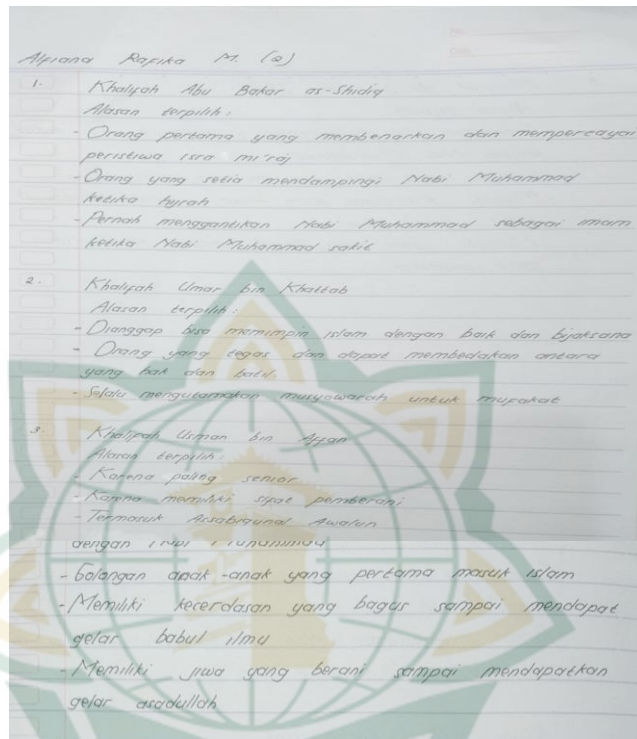 Alfiana Rafika M. (2)
1. Khalifah Abu Bakar as-Shidiq
Alasan terpilih:
- Orang pertama yang membenarkan dan mempercayai
peristiwa isra mi'raj
- Orang yang setia mendampingi Nabi Muhammad
ketika hijrah
- Pernah menggantikan Nabi Muhammad sebagai imam
ketika Nabi Muhammad sakit
2. Khalifah Umar bin Khattab
Alasan terpilih:
- Dianggap bisa memimpin islam dengan baik dan bijaksana
- Orang yang tegas dan dapat membedakan antara
yang hak dan batil.
- Selalu mengutamakan musyawarah untuk mufakat
3. Khalifah Usman bin Affan
Alasan terpilih:
- Karena paling senior
- Karena memiliki sifat pemberani
- Termasuk Assabiqunal Awalun
dengan
- Golongan anak-anak yang pertama masuk islam
- Memiliki kecerdasan yang bagus sampai mendapat
gelar babul ilmu
- Memiliki jiwa yang berani sampai mendapatkan
gelar asadullah